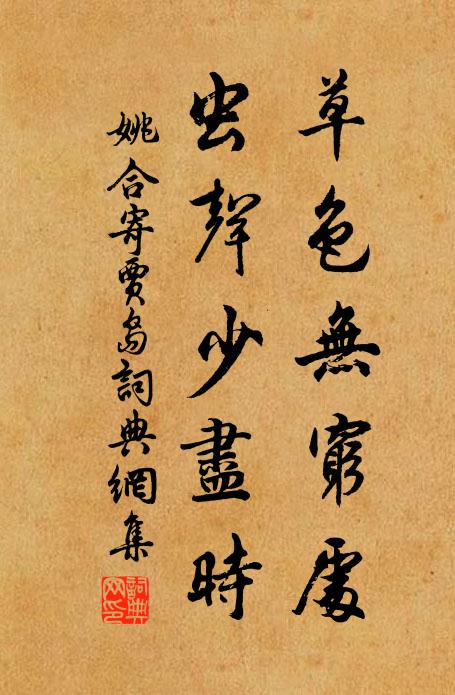 草色無窮處
虫聲少盡時
姚合寄賈島詞典網集
詞典網印